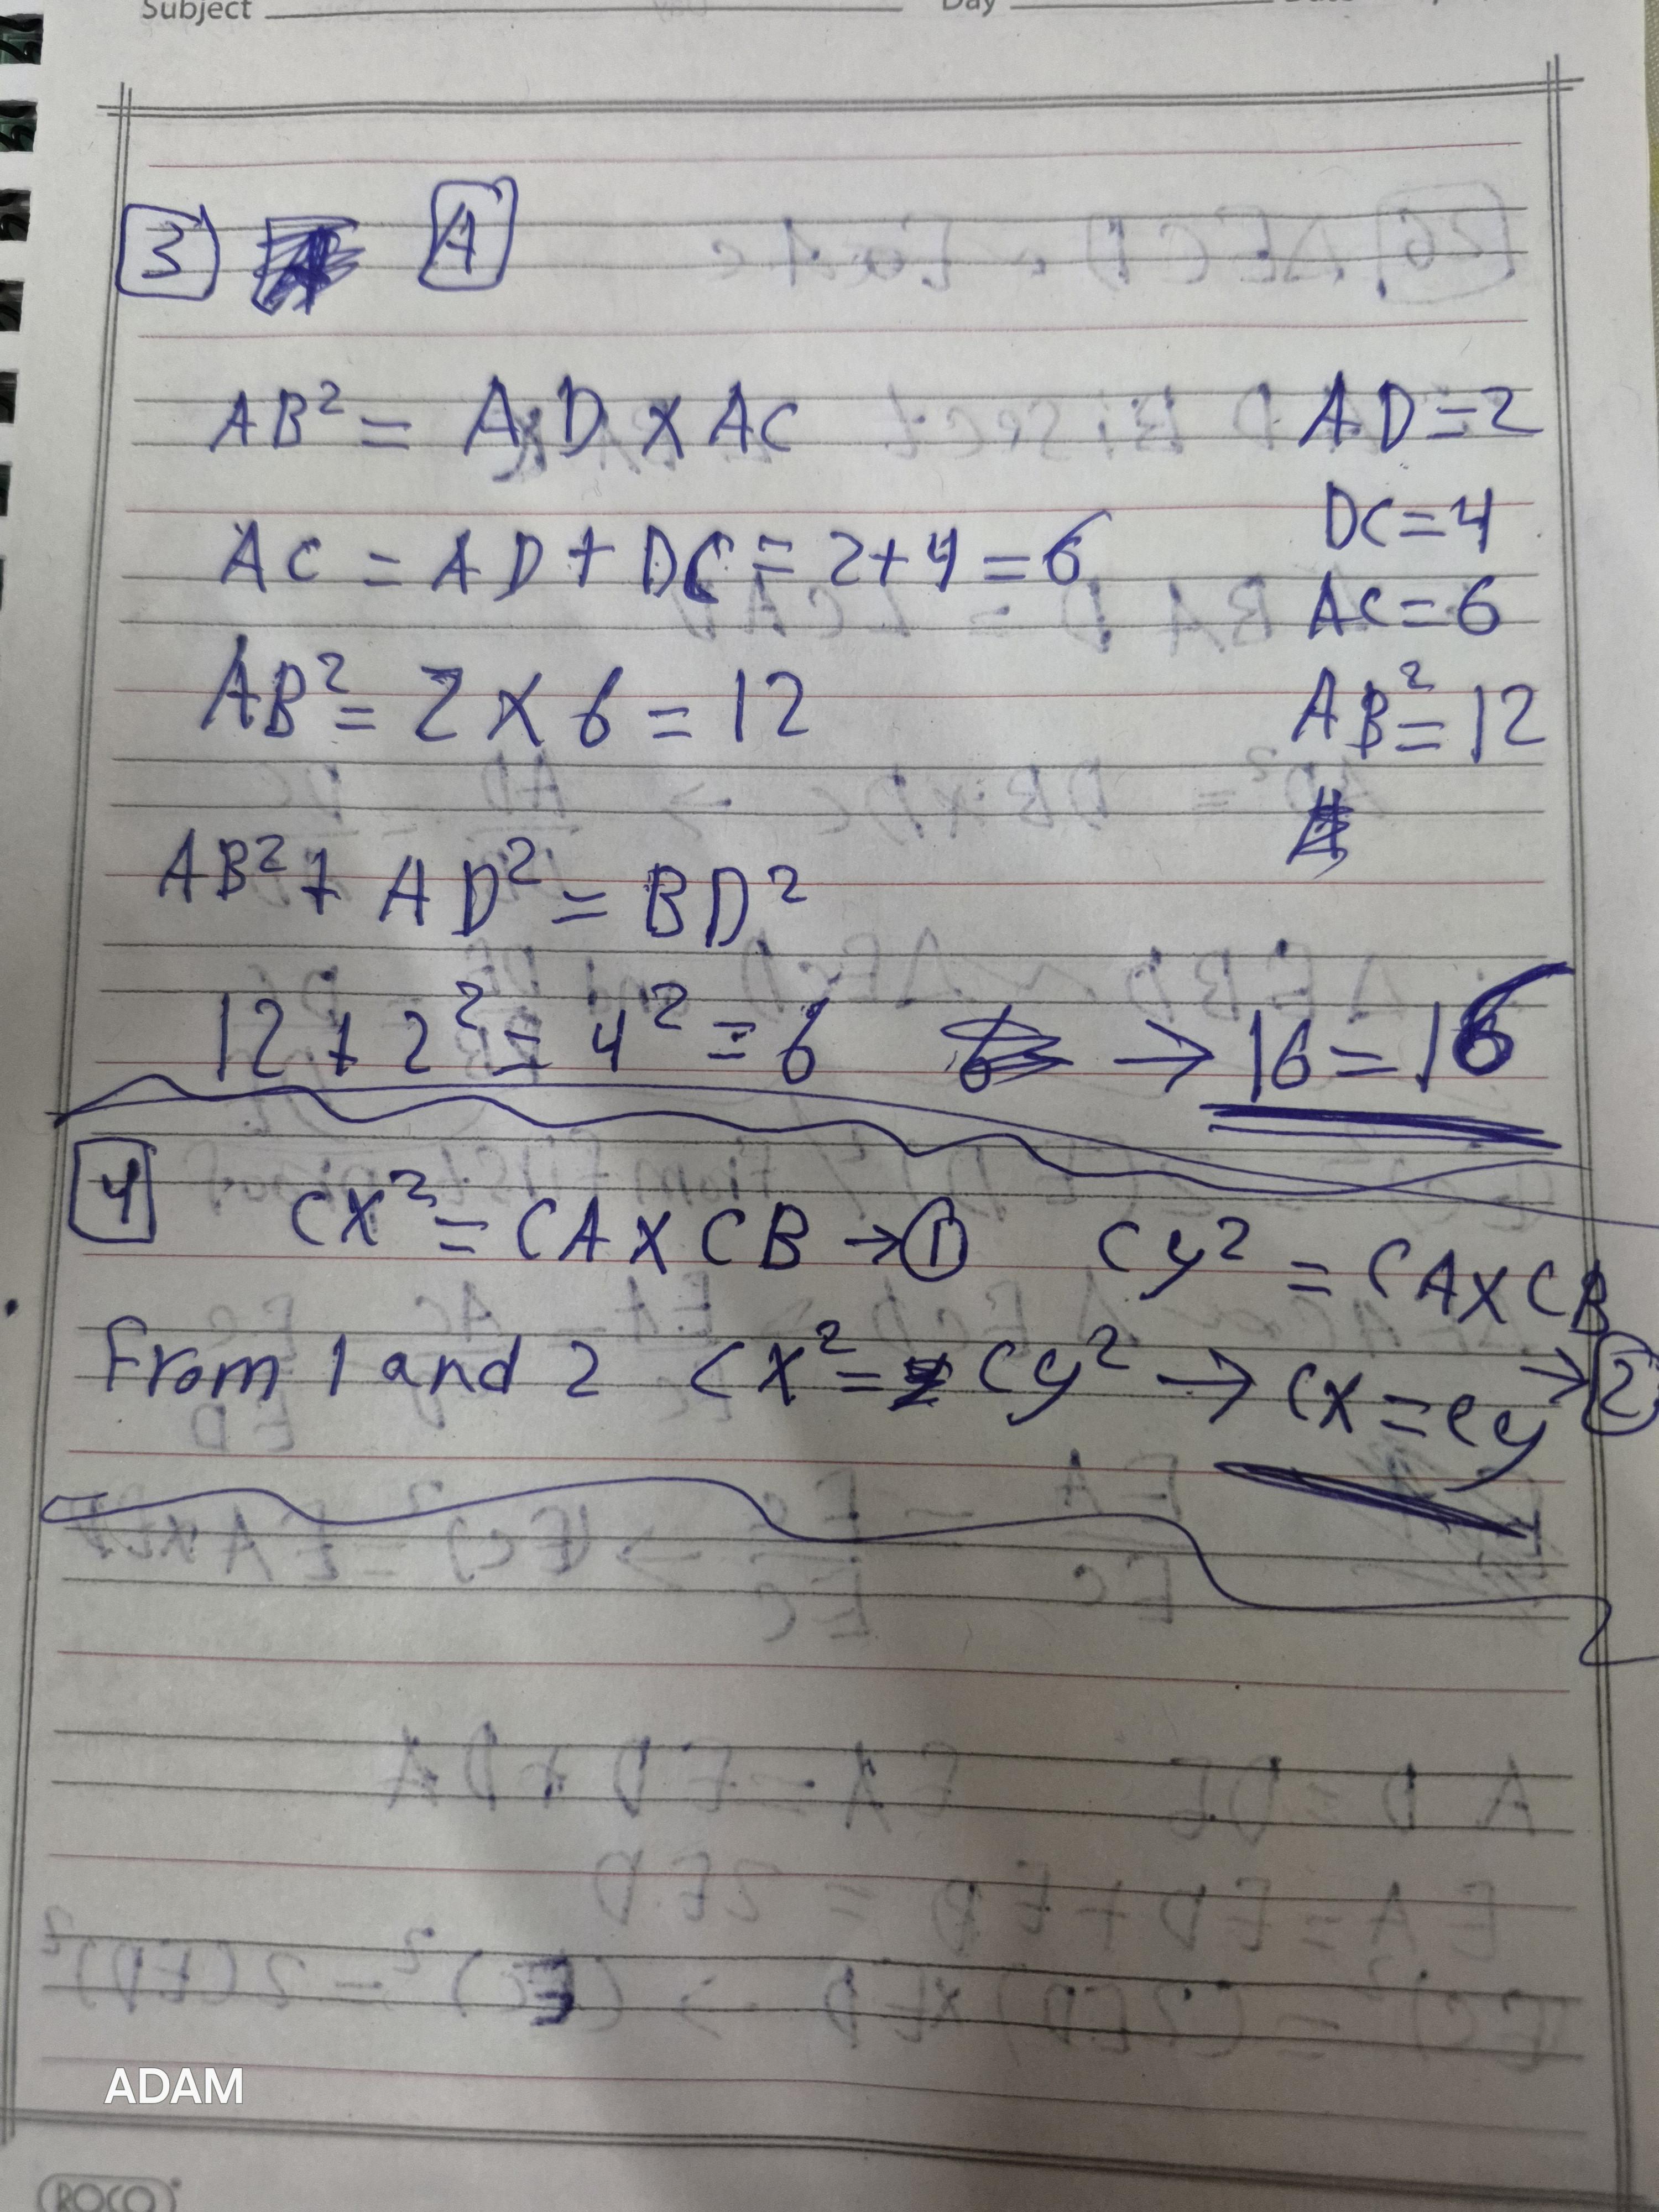 Subject Day
3 A
AB² = AD × AC AD = 2
DC = 4
AC = AD + DC = 2 + 4 = 6
AC = 6
AB² = 2 × 6 = 12 AB² = 12
AB² + AD² = BD²
12 + 2² = 4² = 6 → 16 = 16
4 CX² = CA × CB → ① Cy² = CA × CB → ②
From 1 and 2 CX² = Cy² → CX = Cy
ADAM
ROCO